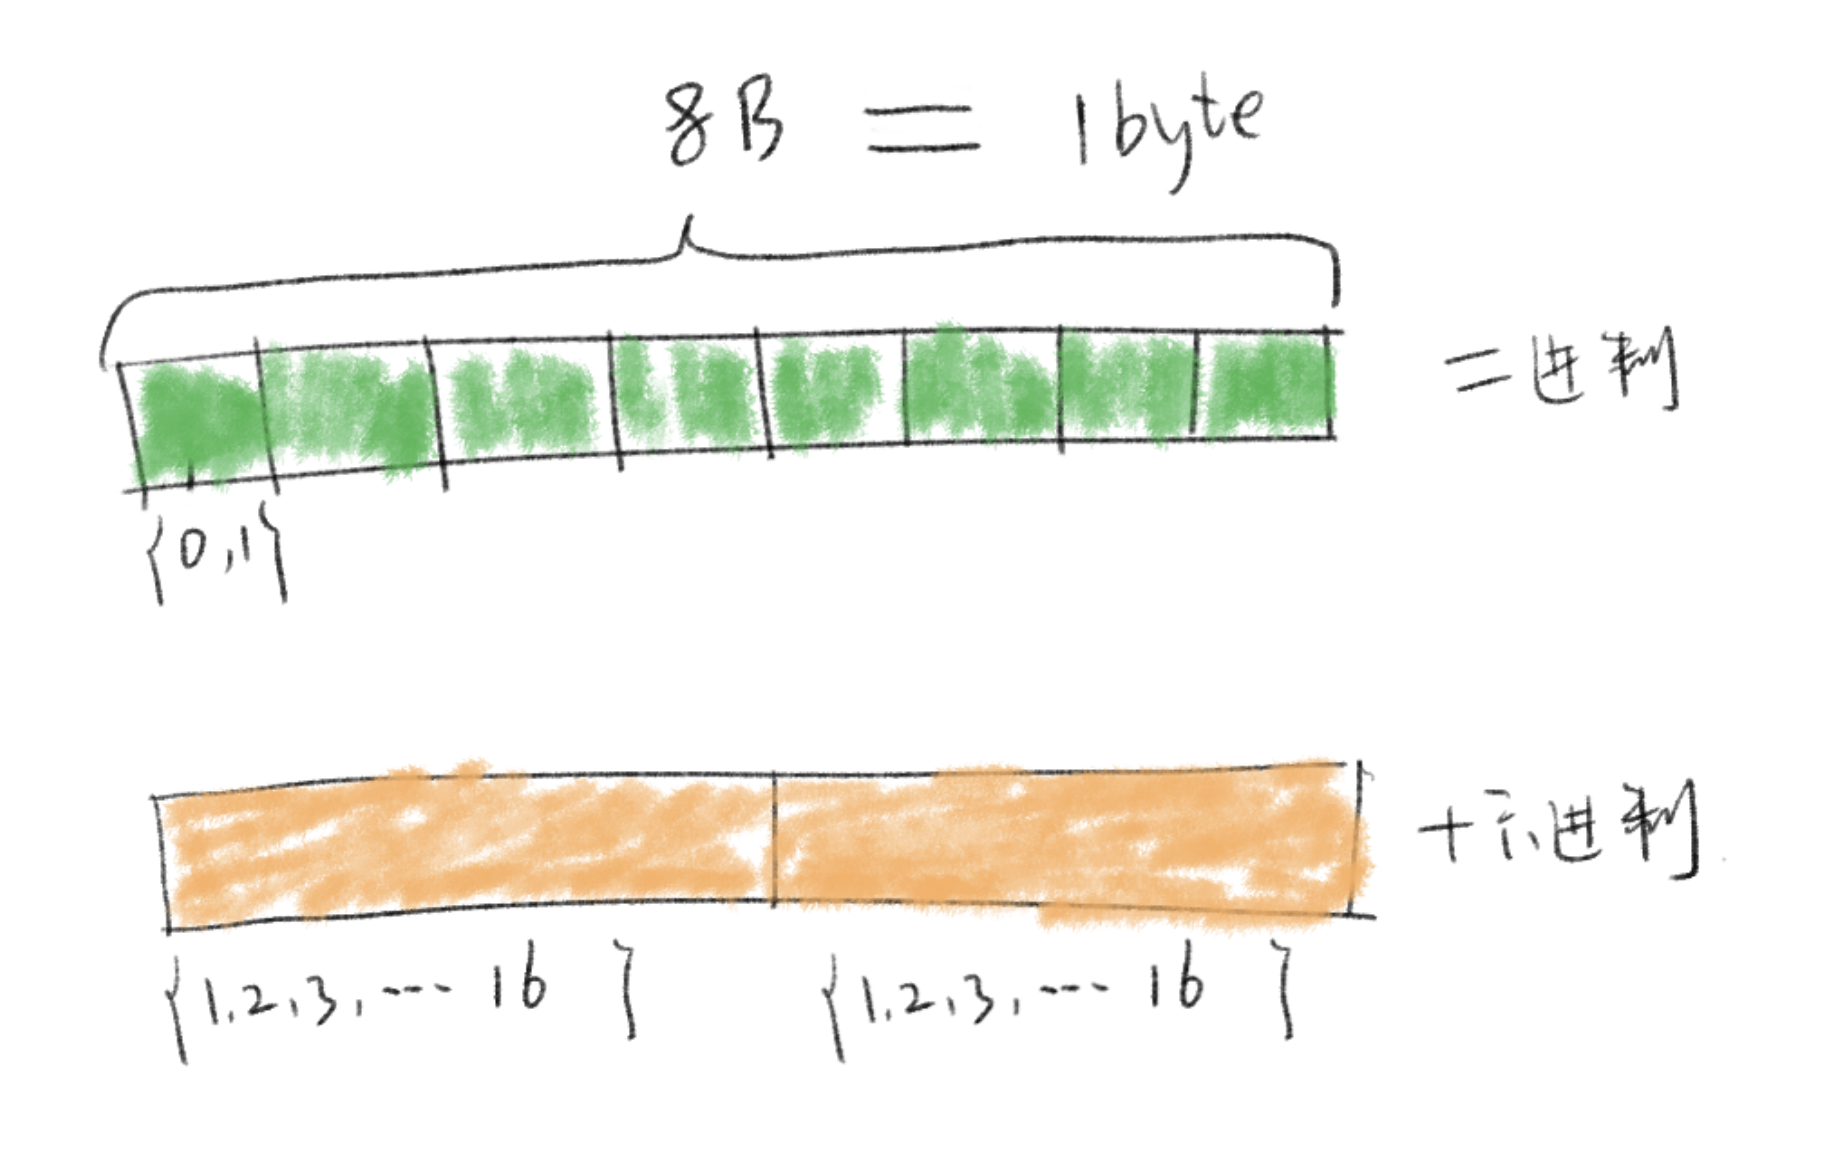 8B = 1byte
二进制
{0,1}
十六进制
{1,2,3,...16} {1,2,3,...16}